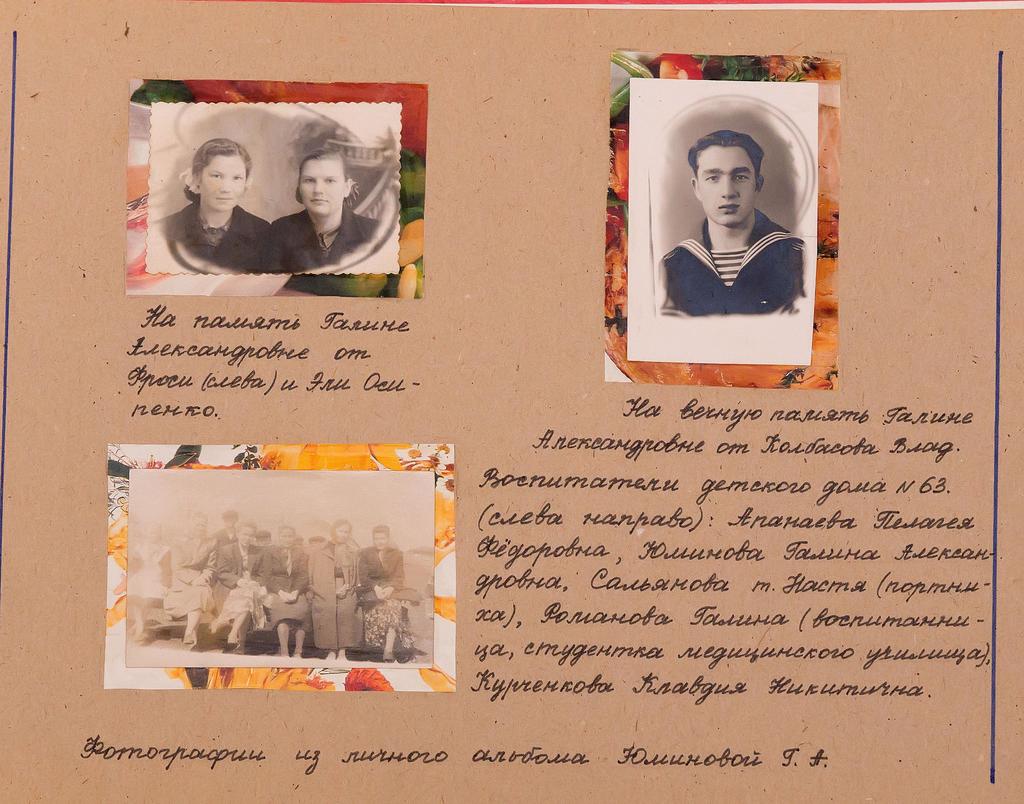 На память Галине
Александровне от
Фроси (слева) и Эли Оси-
пенко.
На вечную память Галине
Александровне от Колбасова Влад.
Воспитатели детского дома № 63.
(слева направо): Апанаева Пелагея
Фёдоровна, Юминова Галина Алексан-
дровна, Сальянова т. Настя (портни-
ха), Романова Галина (воспитанни-
ца, студентка медицинского училища),
Курченкова Клавдия Никитична.
Фотографии из личного альбома Юминовой Г. А.